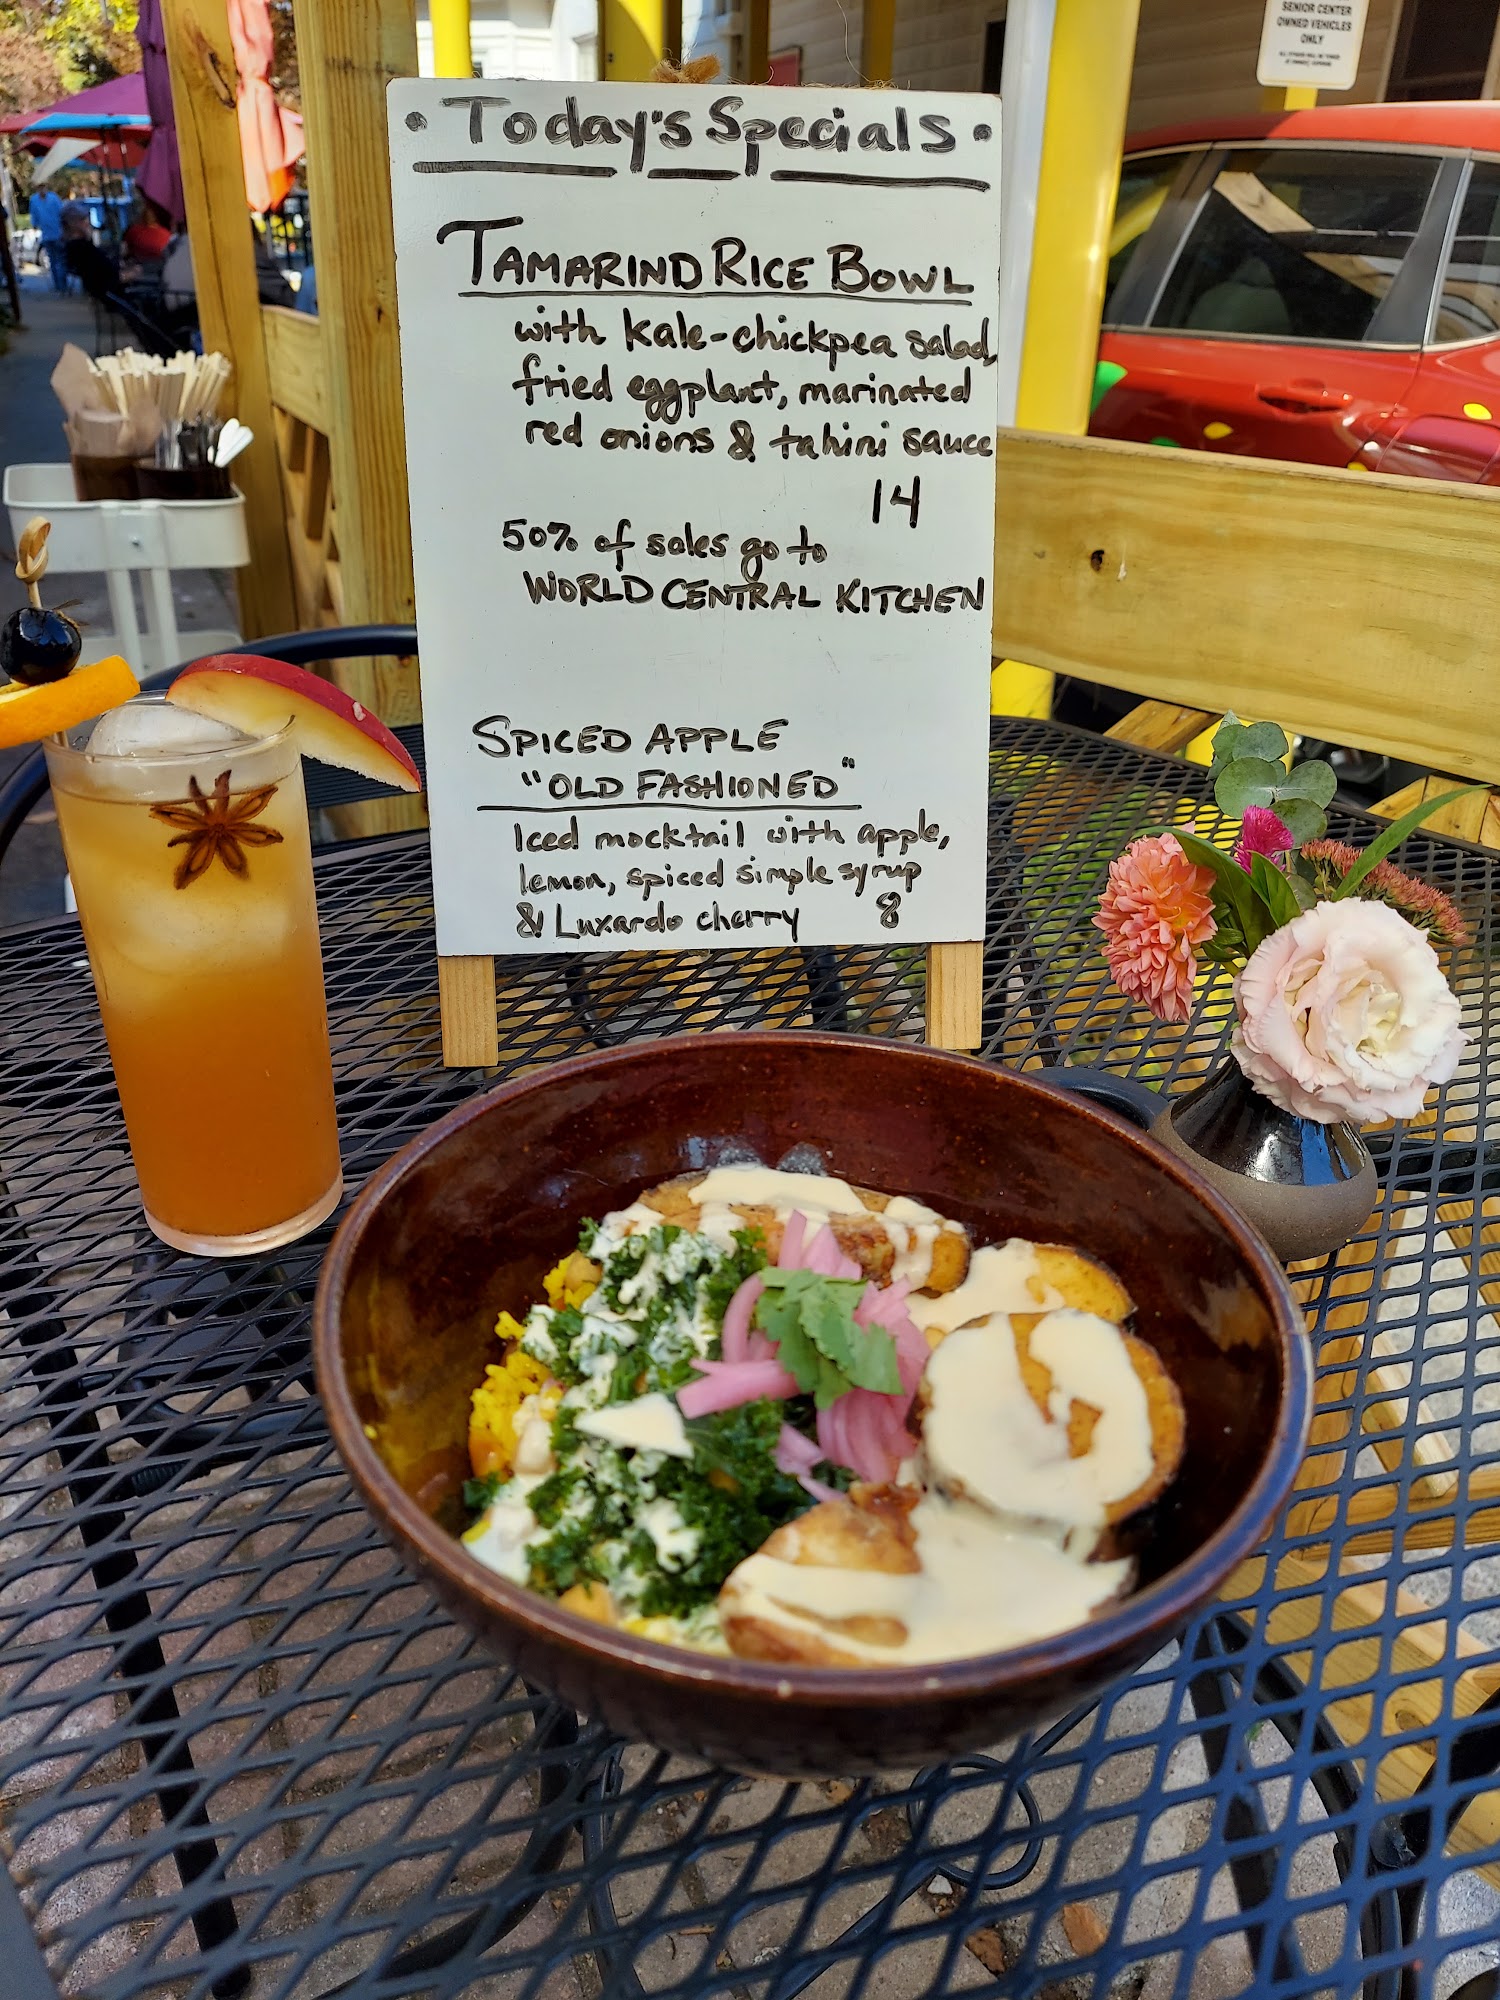 SENIOR CENTER
OWNED VEHICLES
ONLY
• Today's Specials •
TAMARIND RICE BOWL
with kale-chickpea salad,
fried eggplant, marinated
red onions & tahini sauce
14
50% of sales go to
WORLD CENTRAL KITCHEN
SPICED APPLE
"OLD FASHIONED"
Iced mocktail with apple,
lemon, spiced simple syrup
& Luxardo cherry 8